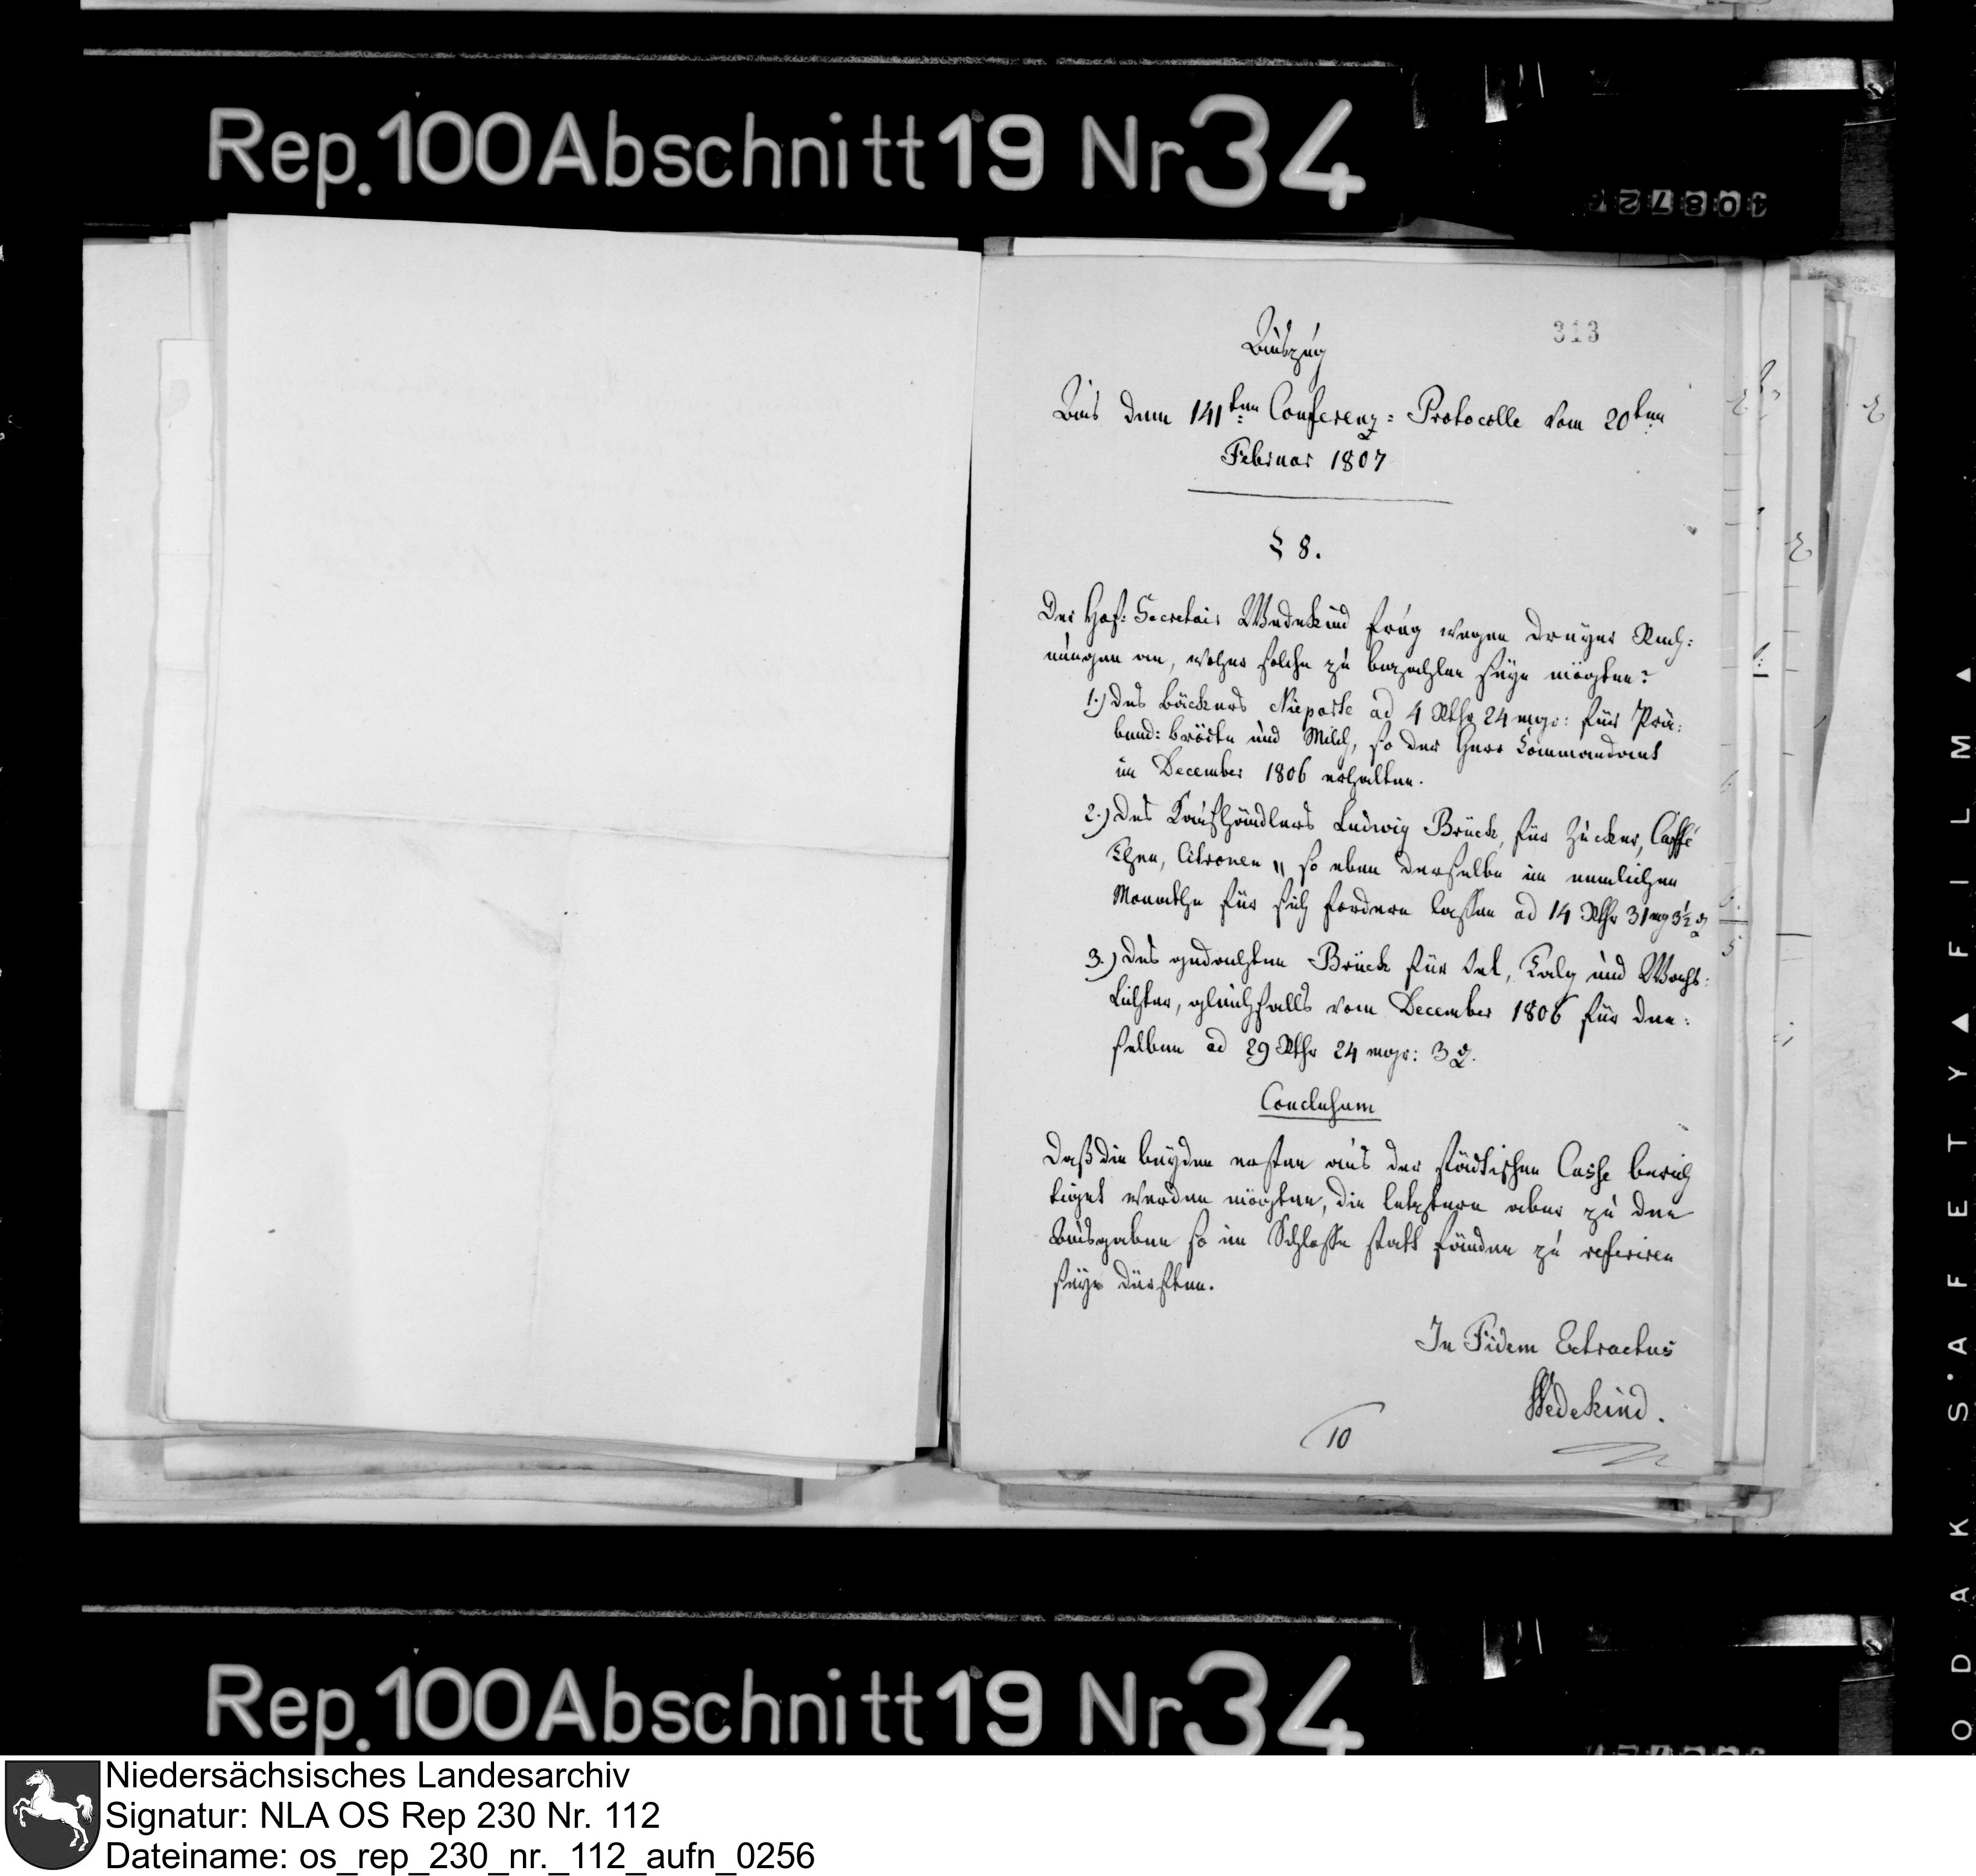 Rep. 100 Abschnitt 19 Nr 34
313
Auszug
Aus dem 141ten Conferenz-Protocolle vom 20ten
Februar 1807
§ 8.
Der Hof-Secretair Wedekind frug wegen dreyer Rech-
nungen an, woher solche zu bezahlen seyn mögten?
1.) Des Bäckers Nieporte ad 4 Rthr 24 mgr: für
bend: bröte und Milch, so der Herr Commandant
im December 1806 erhalten.
2.) Des Kaufhändlers Ludwig Brück, für Zucker, Caffé
Thee, Citronen so eben derselbe im nemlichen
Monathe für sich fordern lassen ad 14 Rthr 31 mgr 3½ ₰
3.) Des gedachten Brück für Oel, Talg und Wachs-
Lichter, gleichfalls vom December 1806 für den-
selben ad 29 Rthr 24 mgr: 3 ₰.
Conclusum
Daß die beyden ersten aus der städtischen Casse berich
tiget werden mögten, die letztere aber zu den
Ausgaben so im Schlosse statt fänden zu referiren
seyn dürften.
In Fidem Extractus
Wedekind.
10
KODAK SAFETY FILM
Rep. 100 Abschnitt 19 Nr 34
Niedersächsisches Landesarchiv
Signatur: NLA OS Rep 230 Nr. 112
Dateiname: os_rep_230_nr._112_aufn_0256